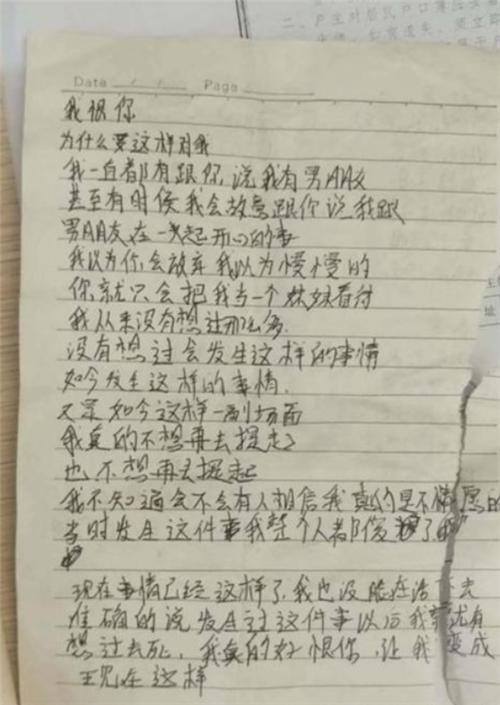 二、户主对居民户口簿应妥
Date / / Page
我恨你
为什么要这样对我
我一直都有跟你说我有男朋友
甚至有时候我会故意跟你说我跟
男朋友在一起开心的事
我以为你会放弃我以为慢慢的
你就只会把我当一个妹妹看待
我从来没有想过那么多
没有想过会发生这样的事情
如今发生这样的事情.
又是如今这样一副场面
我真的不想再去提起
也不想再去提起
我不知道会不会有人相信我真的是不情愿的
当时发生这件事我整个人都傻了
现在事情已经这样了,我也没脸在活下去
准确的说发生过这件事以后我就有
想过去死,我真的好恨你,让我变成
现在这样
址